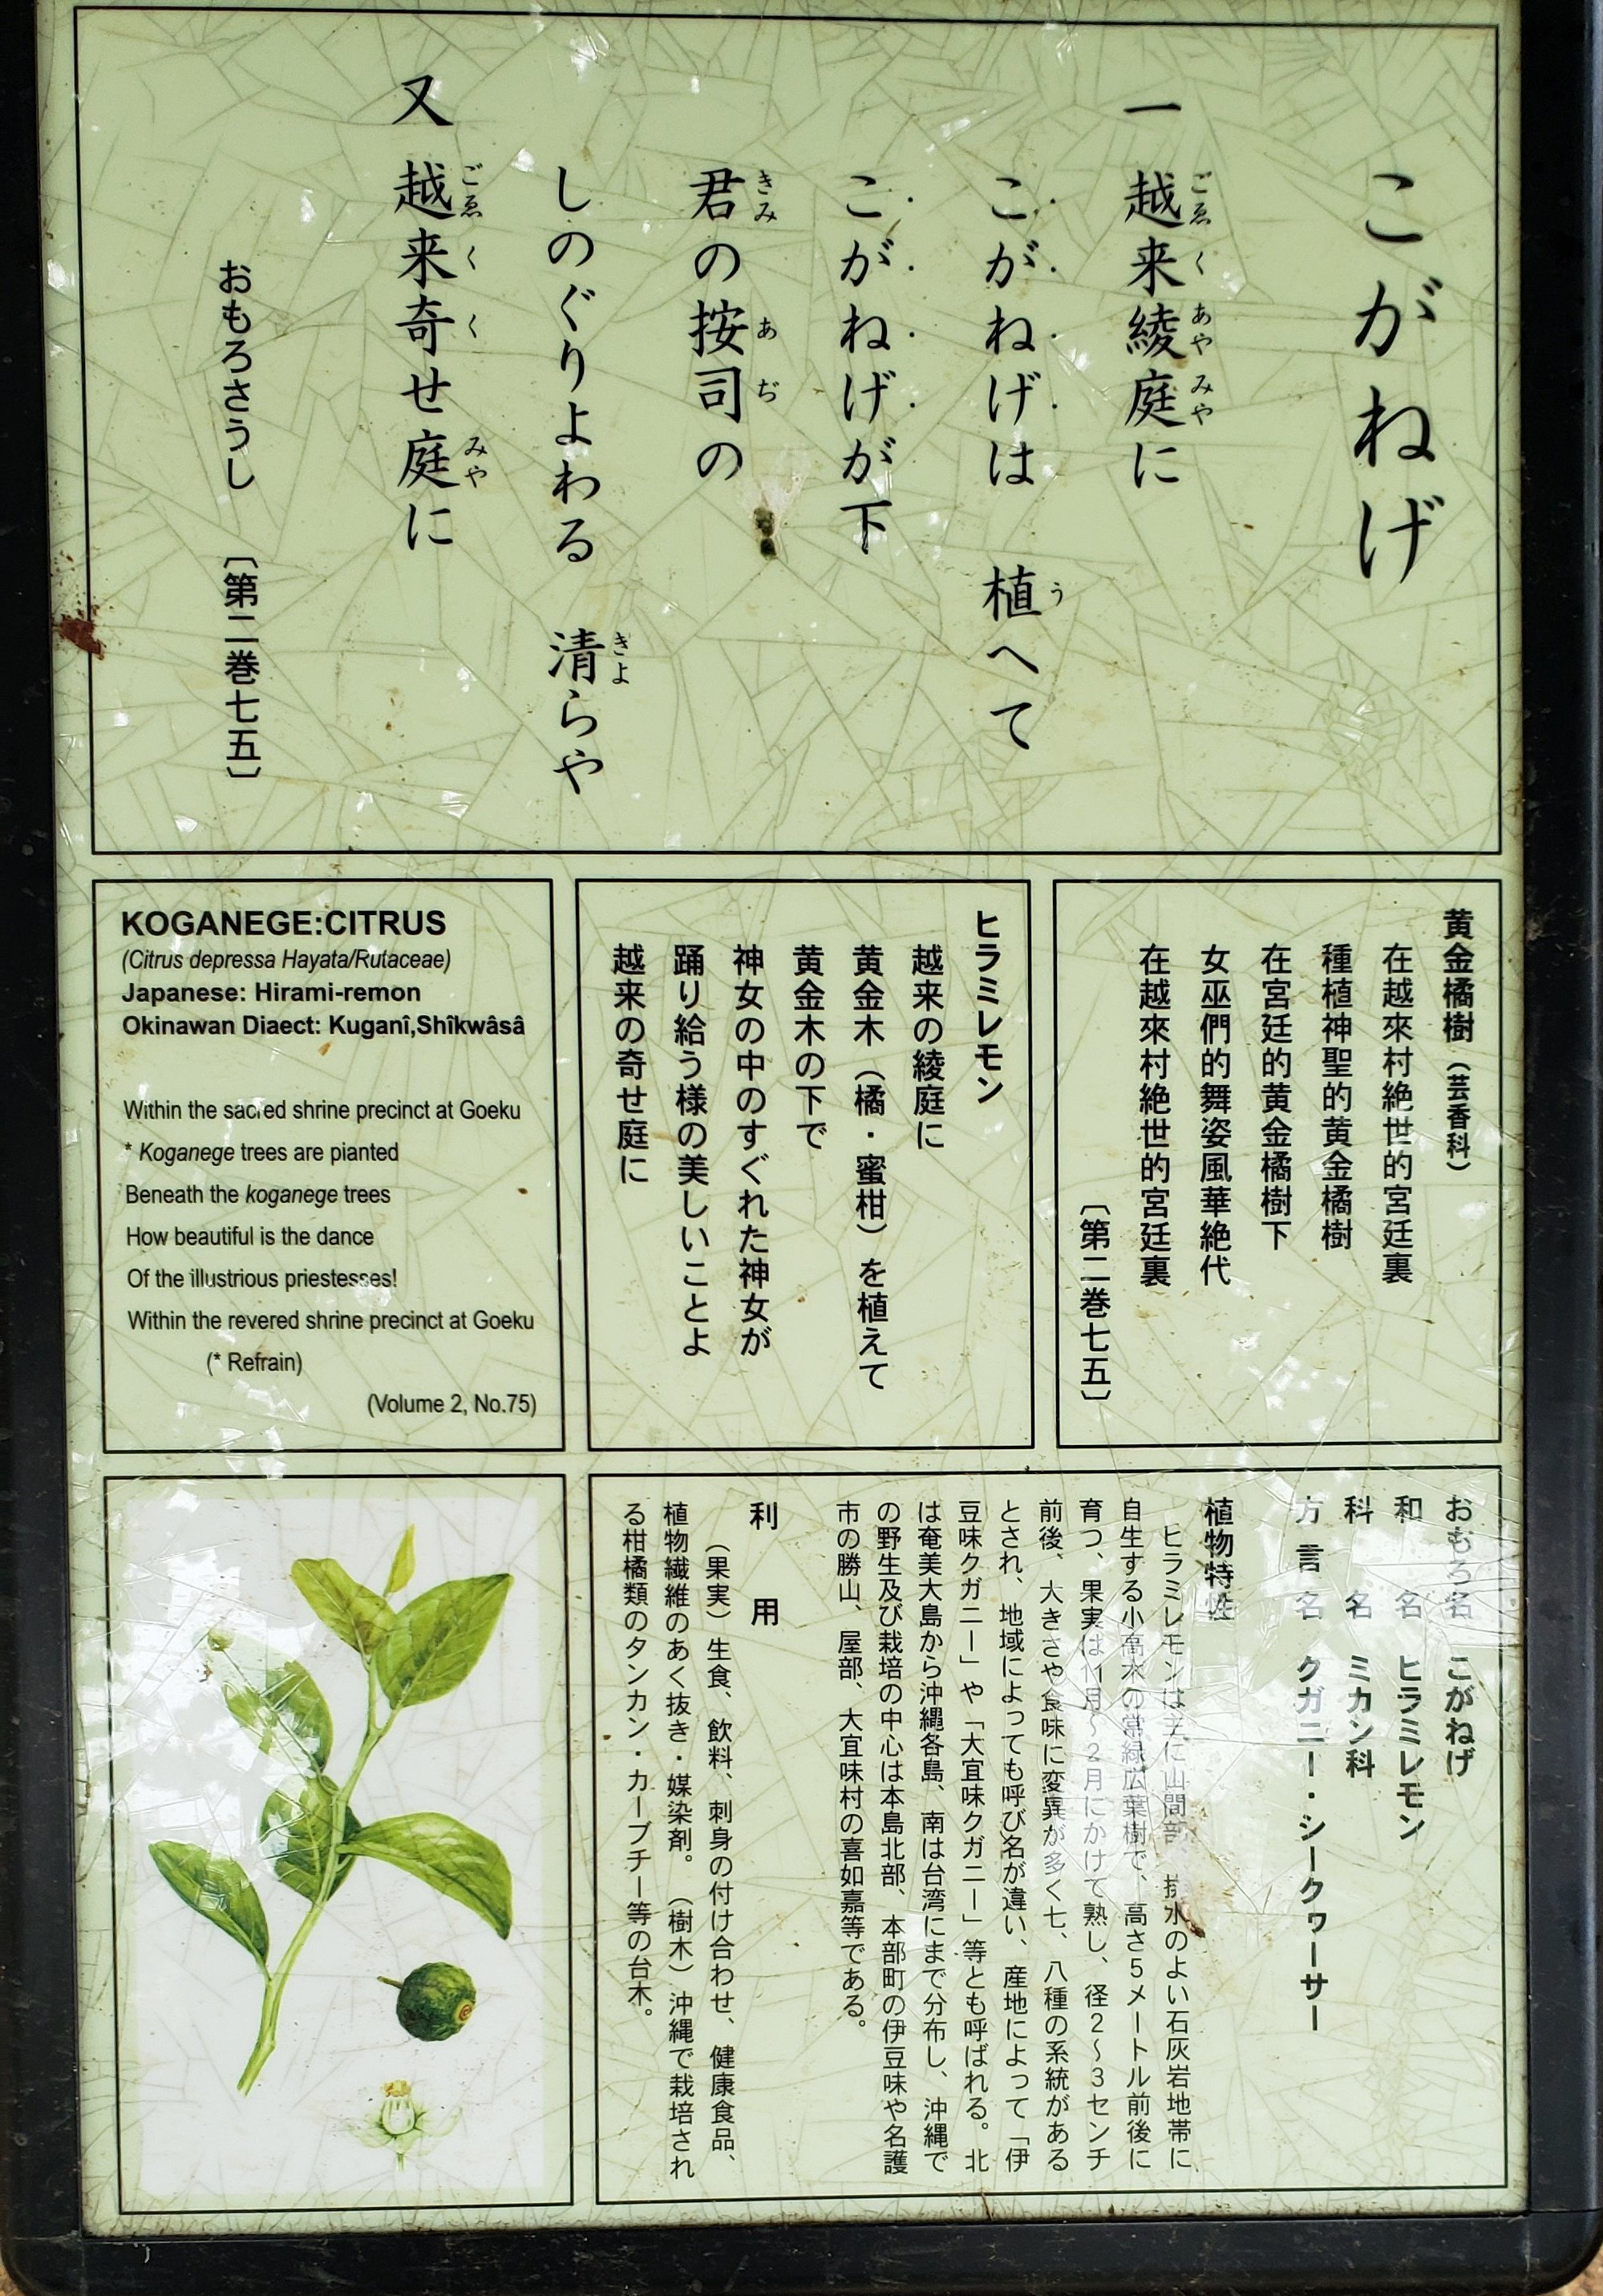 こがねげ
一 越来綾庭に
こがねげは 植へて
こがねげが下
君の按司の
しのぐりよわる 清らや
又 越来奇せ庭に
おもろさうし 〔第二巻七五〕
黄金橘樹（芸香科）
在越來村絶世的宮廷裏
種植神聖的黄金橘樹
在宮廷的黄金橘樹下
女巫們的舞姿風華絶代
在越來村絶世的宮廷裏
〔第二巻七五〕
ヒラミレモン
越来の綾庭に
黄金木（橘・蜜柑）を植えて
黄金木の下で
神女の中のすぐれた神女が
踊り給う様の美しいことよ
越来の奇せ庭に
KOGANEGE:CITRUS
(Citrus depressa Hayata/Rutaceae)
Japanese: Hirami-remon
Okinawan Diaect: Kuganî,Shîkwâsâ
Within the sacred shrine precinct at Goeku
* Koganege trees are pianted
Beneath the koganege trees
How beautiful is the dance
Of the illustrious priestesses!
Within the revered shrine precinct at Goeku
(* Refrain)
(Volume 2, No.75)
おもろ名 こがねげ
和名 ヒラミレモン
科名 ミカン科
方言名 クガニー・シークヮーサー
植物特性
ヒラミレモンは主に山間部、排水のよい石灰岩地帯に
自生する小高木の常緑広葉樹で、高さ5メートル前後に
育つ、果実は11月～2月にかけて熟し、径2～3センチ
前後、大きさや食味に変異が多く七、八種の系統がある
とされ、地域によっても呼び名が違い、産地によって「伊
豆味クガニー」や「大宜味クガニー」等とも呼ばれる。北
は奄美大島から沖縄各島、南は台湾にまで分布し、沖縄で
の野生及び栽培の中心は本島北部、本部町の伊豆味や名護
市の勝山、屋部、大宜味村の喜如嘉等である。
利用
（果実）生食、飲料、刺身の付け合わせ、健康食品、
植物繊維のあく抜き・媒染剤。（樹木）沖縄で栽培され
る柑橘類のタンカン・カーブチー等の台木。